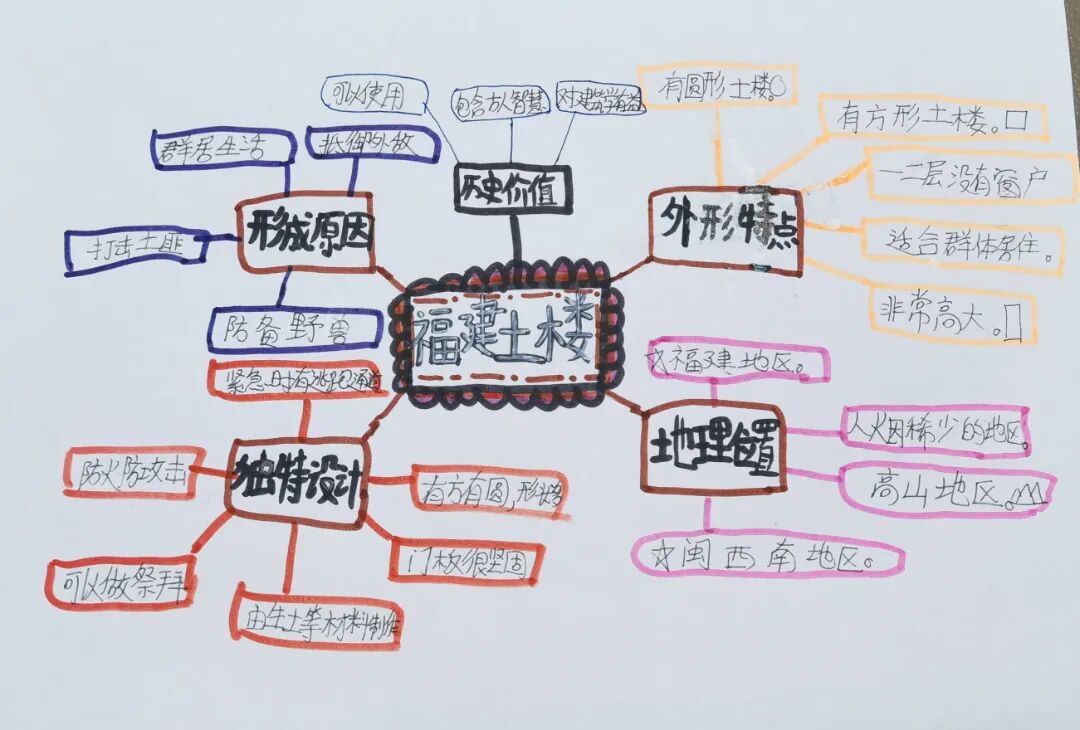 福建土楼
历史价值
可以使用
包含古人智慧
对建筑有益
形成原因
群居生活
抵御外敌
打击土匪
防备野兽
外形特点
有圆形土楼。
有方形土楼。
一二层没有窗户
适合群体居住。
非常高大。
地理位置
福建地区。
人火因稀少的地区。
高山地区。
闽西南地区。
独特设计
紧急时有逃跑通道
防火防攻击
可以做祭拜
由生土等材料制作
门板很坚固
有方有圆,形状多